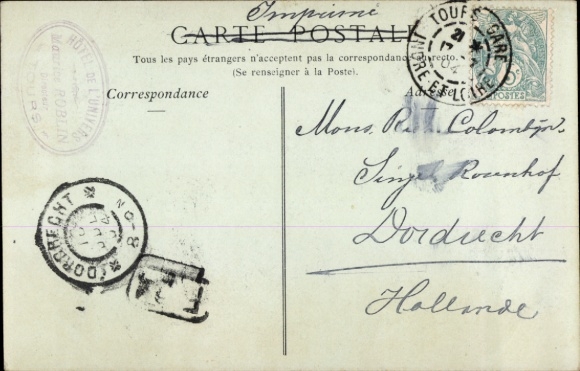 Imprimé
CARTE POSTALE
Tous les pays étrangers n'acceptent pas la correspondance au recto.
(Se renseigner à la Poste).
Correspondance
Adresse
HÔTEL DE L'UNIVERS
Maurice ROBLIN
TOURS
TOURS GARE
INDRE-ET-LOIRE
04
POSTES
Mons. Colombijn
Singel Rozenhof
Dordrecht
Hollande
DORDRECHT